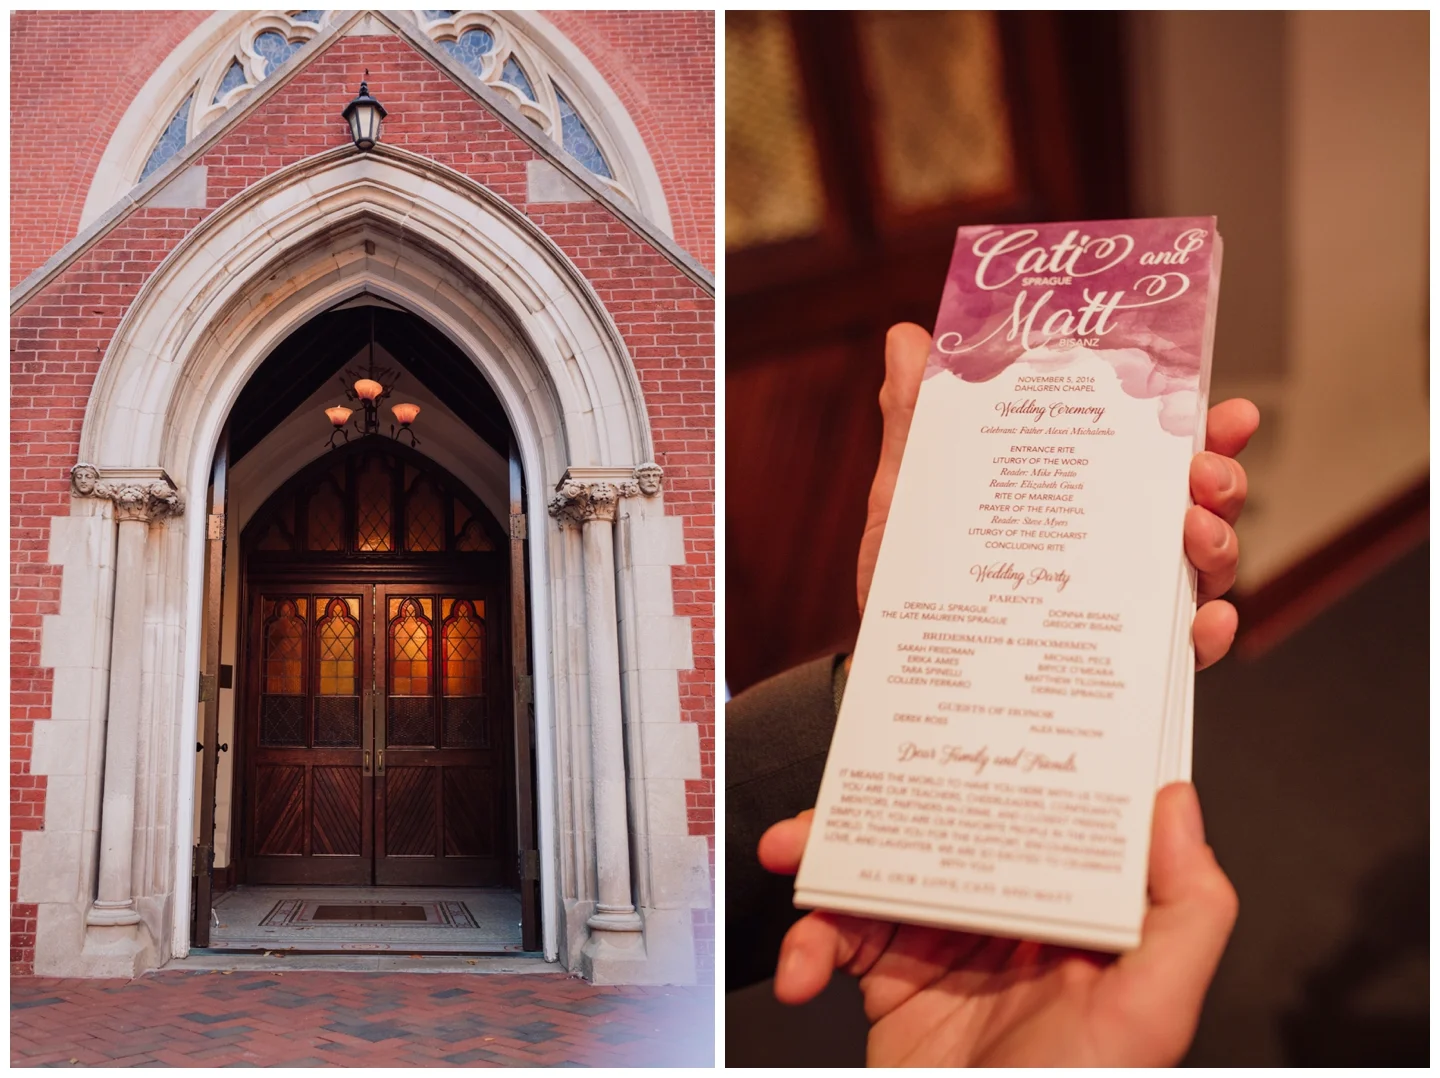 Cati and
SPRAGUE
Matt
BISANZ
NOVEMBER 5, 2016
DAHLGREN CHAPEL
Wedding Ceremony
Celebrant: Father Alexei Michalenko
ENTRANCE RITE
LITURGY OF THE WORD
Reader: Mike Fratto
Reader: Elizabeth Giusti
RITE OF MARRIAGE
PRAYER OF THE FAITHFUL
Reader: Steve Myers
LITURGY OF THE EUCHARIST
CONCLUDING RITE
Wedding Party
PARENTS
DERING J. SPRAGUE DONNA BISANZ
THE LATE MAUREEN SPRAGUE GREGORY BISANZ
BRIDESMAIDS & GROOMSMEN
SARAH FRIEDMAN MICHAEL PECE
ERIKA AMES BRYCE O'MEARA
TARA SPINELLI MATTHEW TILGHMAN
COLLEEN FERRARO DERING SPRAGUE
GUESTS OF HONOR
DEREK ROSS ALEX
Dear Family and Friends,
IT MEANS THE WORLD TO HAVE YOU HERE WITH US TODAY.
YOU ARE OUR TEACHERS, CHEERLEADERS, CONFIDANTS,
MENTORS, PARTNERS-IN-CRIME, AND CLOSEST FRIENDS.
SIMPLY PUT, YOU ARE OUR FAVORITE PEOPLE IN THE ENTIRE
WORLD. THANK YOU FOR THE SUPPORT, ENCOURAGEMENT,
LOVE, AND LAUGHTER. WE ARE SO EXCITED TO CELEBRATE
WITH YOU!
ALL OUR LOVE, CATI AND MATT